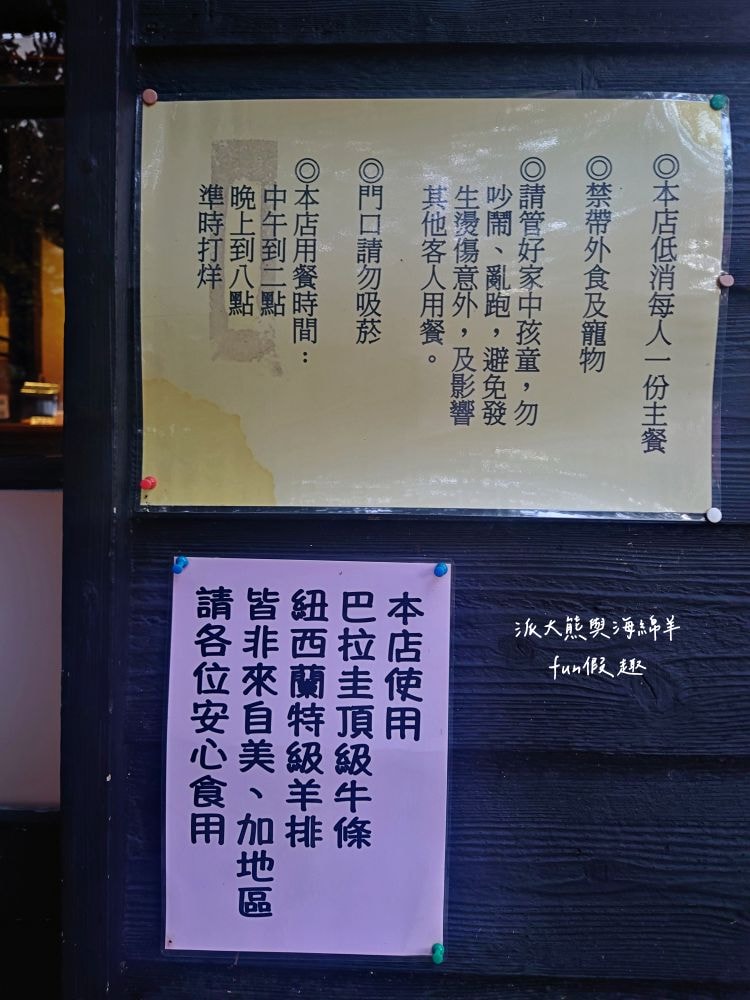 ◎本店低消每人一份主餐
◎禁帶外食及寵物
◎請管好家中孩童，勿
吵鬧、亂跑，避免發
生燙傷意外，及影響
其他客人用餐。
◎門口請勿吸菸
◎本店用餐時間：
中午到二點
晚上到八點
準時打烊
本店使用
巴拉圭頂級牛條
紐西蘭特級羊排
皆非來自美、加地區
請各位安心食用
派大熊與海綿羊
fun假趣